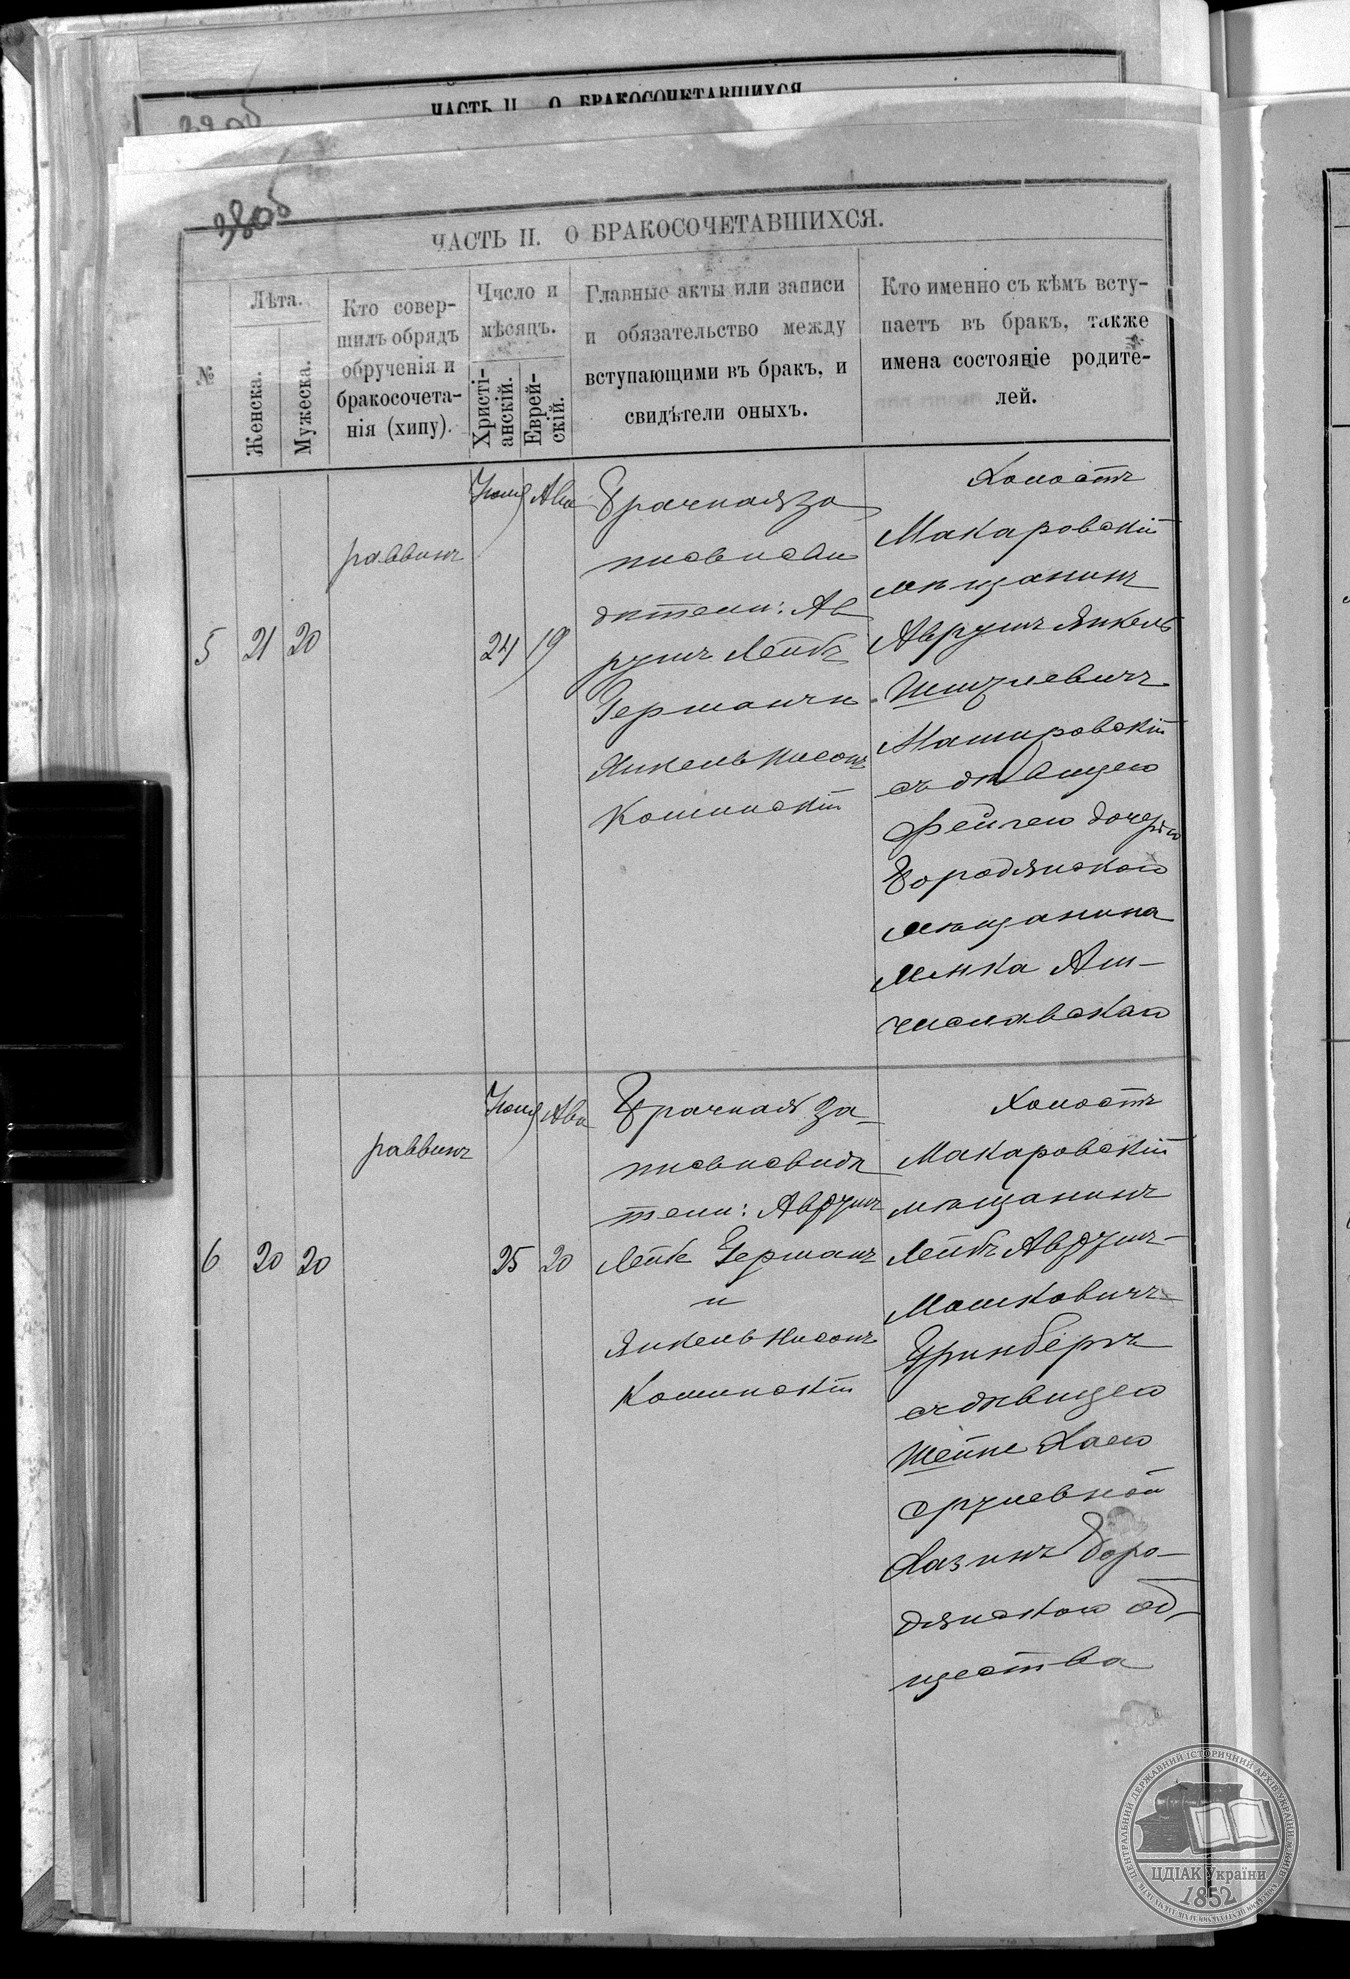 ЧАСТЬ II. О БРАКОСОЧЕТАВШИХСЯ
380б
ЧАСТЬ II. О БРАКОСОЧЕТАВШИХСЯ.
№
Лѣта.
Женска.
Мужеска.
Кто совер-
шилъ обрядъ
обрученія и
бракосочета-
нія (хипу).
Число и
мѣсяцъ.
Христі-
анскій.
Еврей-
скій.
Главные акты или записи
и обязательство между
вступающими въ бракъ, и
свидѣтели оныхъ.
Кто именно съ кѣмъ всту-
паетъ въ бракъ, также
имена состояніе родите-
лей.
5
21
20
раввинъ
Іюля
24
Ава
19
Брачная за
пись и сви
дѣтели: Ав
румъ Лейбъ
Германъ и
Янкель Нисонъ
Коминскій
Холостъ
Макаровскій
мѣщанинъ
Аврумъ Янкель
Шмулевичъ
съ дѣвицею
Фейгею дочерью
Бородянскаго
мѣщанина
6
20
20
раввинъ
Іюля
25
Ава
20
Брачная за-
пись и свидѣ
тели: Аврумъ
Лейб Германъ
и
Янкель Нисонъ
Коминскій
Холостъ
Макаровскій
мѣщанинъ
Лейбъ Аврумъ-
Мошковичъ
Гринбергъ
съ дѣвицею
Шейне Хаею
Срулевной
Хазинъ Боро-
дянскаго об-
щества
ЦЕНТРАЛЬНИЙ ДЕРЖАВНИЙ ІСТОРИЧНИЙ АРХІВ УКРАЇНИ, М.КИЇВ
ЦДІАК України
1852